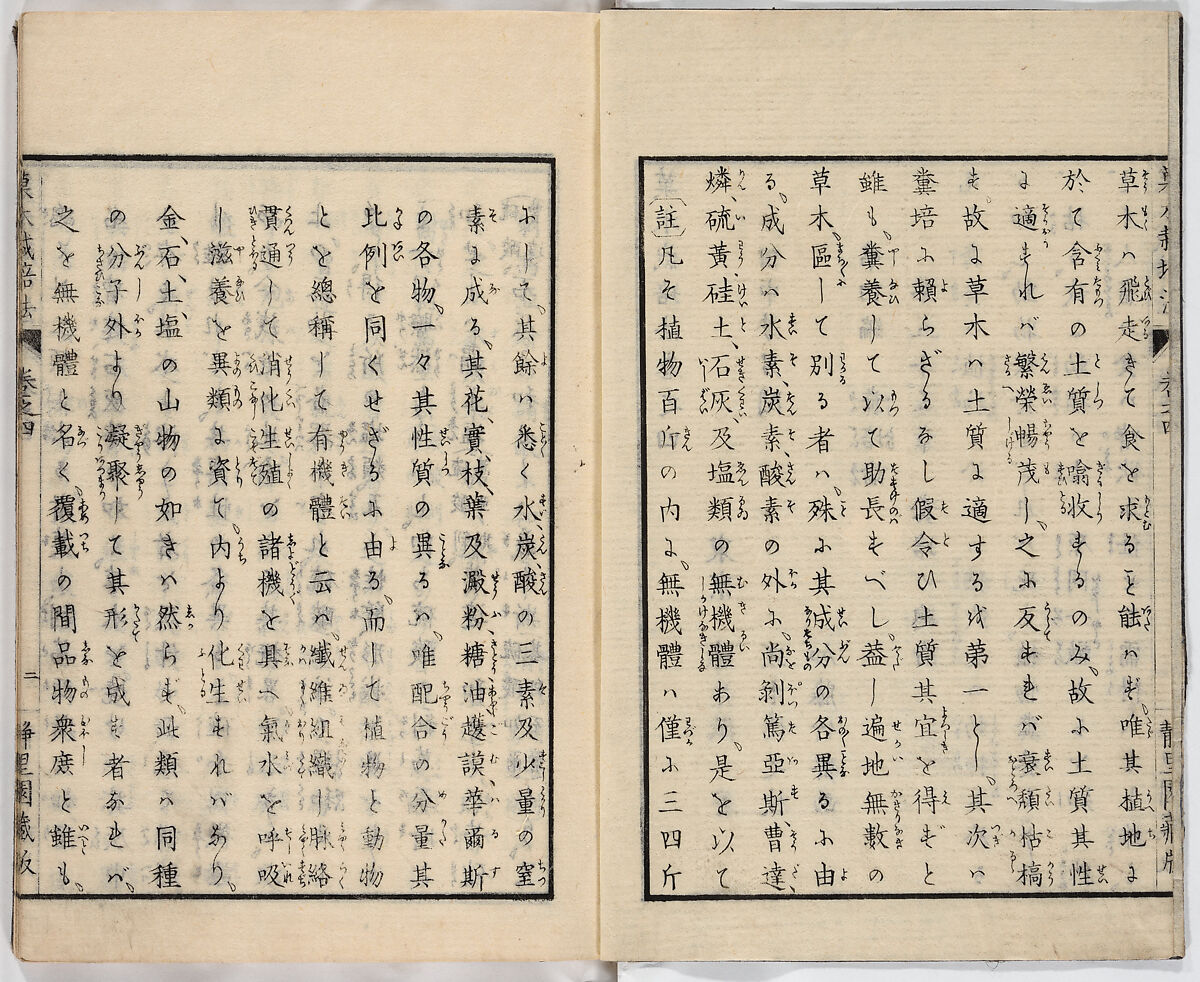 草木ハ飛走きて食を求るヿ能ハず唯其植地に
於て含有の土質を噏收するのみ、故ふ土質其性
に適すれバ繁榮暢茂し、之ふ反すれバ衰頽枯槁
す、故に草木ハ土質に適するを第一とし、其次ハ
糞培ふ賴らざるなし假令ひ土質其宜を得ずと
雖も、糞養して以て助長すべし蓋し遍地無數の
草木、區して別る者ハ、殊ふ其成分の各異るふ由
る、成分ハ水素、炭素、酸素の外ふ、尚剝篤亞斯、曹達、
燐、硫黃、硅土、石灰、及塩類の無機體あり、是を以て
註凡そ植物百斤の内に、無機體ハ僅ふ三四斤
ふして、其餘ハ悉く水、炭、酸の三素及少量の窒
素に成る、其花、實、枝、葉及澱粉、糖、油、越護謨、華爾斯
の各物、一々其性質の異るハ、唯配合の分量其
比例を同くせざるふ由る、而して植物と動物
とを總稱して有機體と云ハ、纖維組織し脉絡
貫通して消化生殖の諸機を具へ氣水を呼吸
し滋養を異類に資て、内より化生すれバなり、
金、石、土、塩の山物の如きハ然らず、此類ハ同種
の分子外より凝聚して其形を成す者なれバ、
之を無機體と名く、覆載の間品物衆庶と雖も、
卷之四
二
靜里園藏版